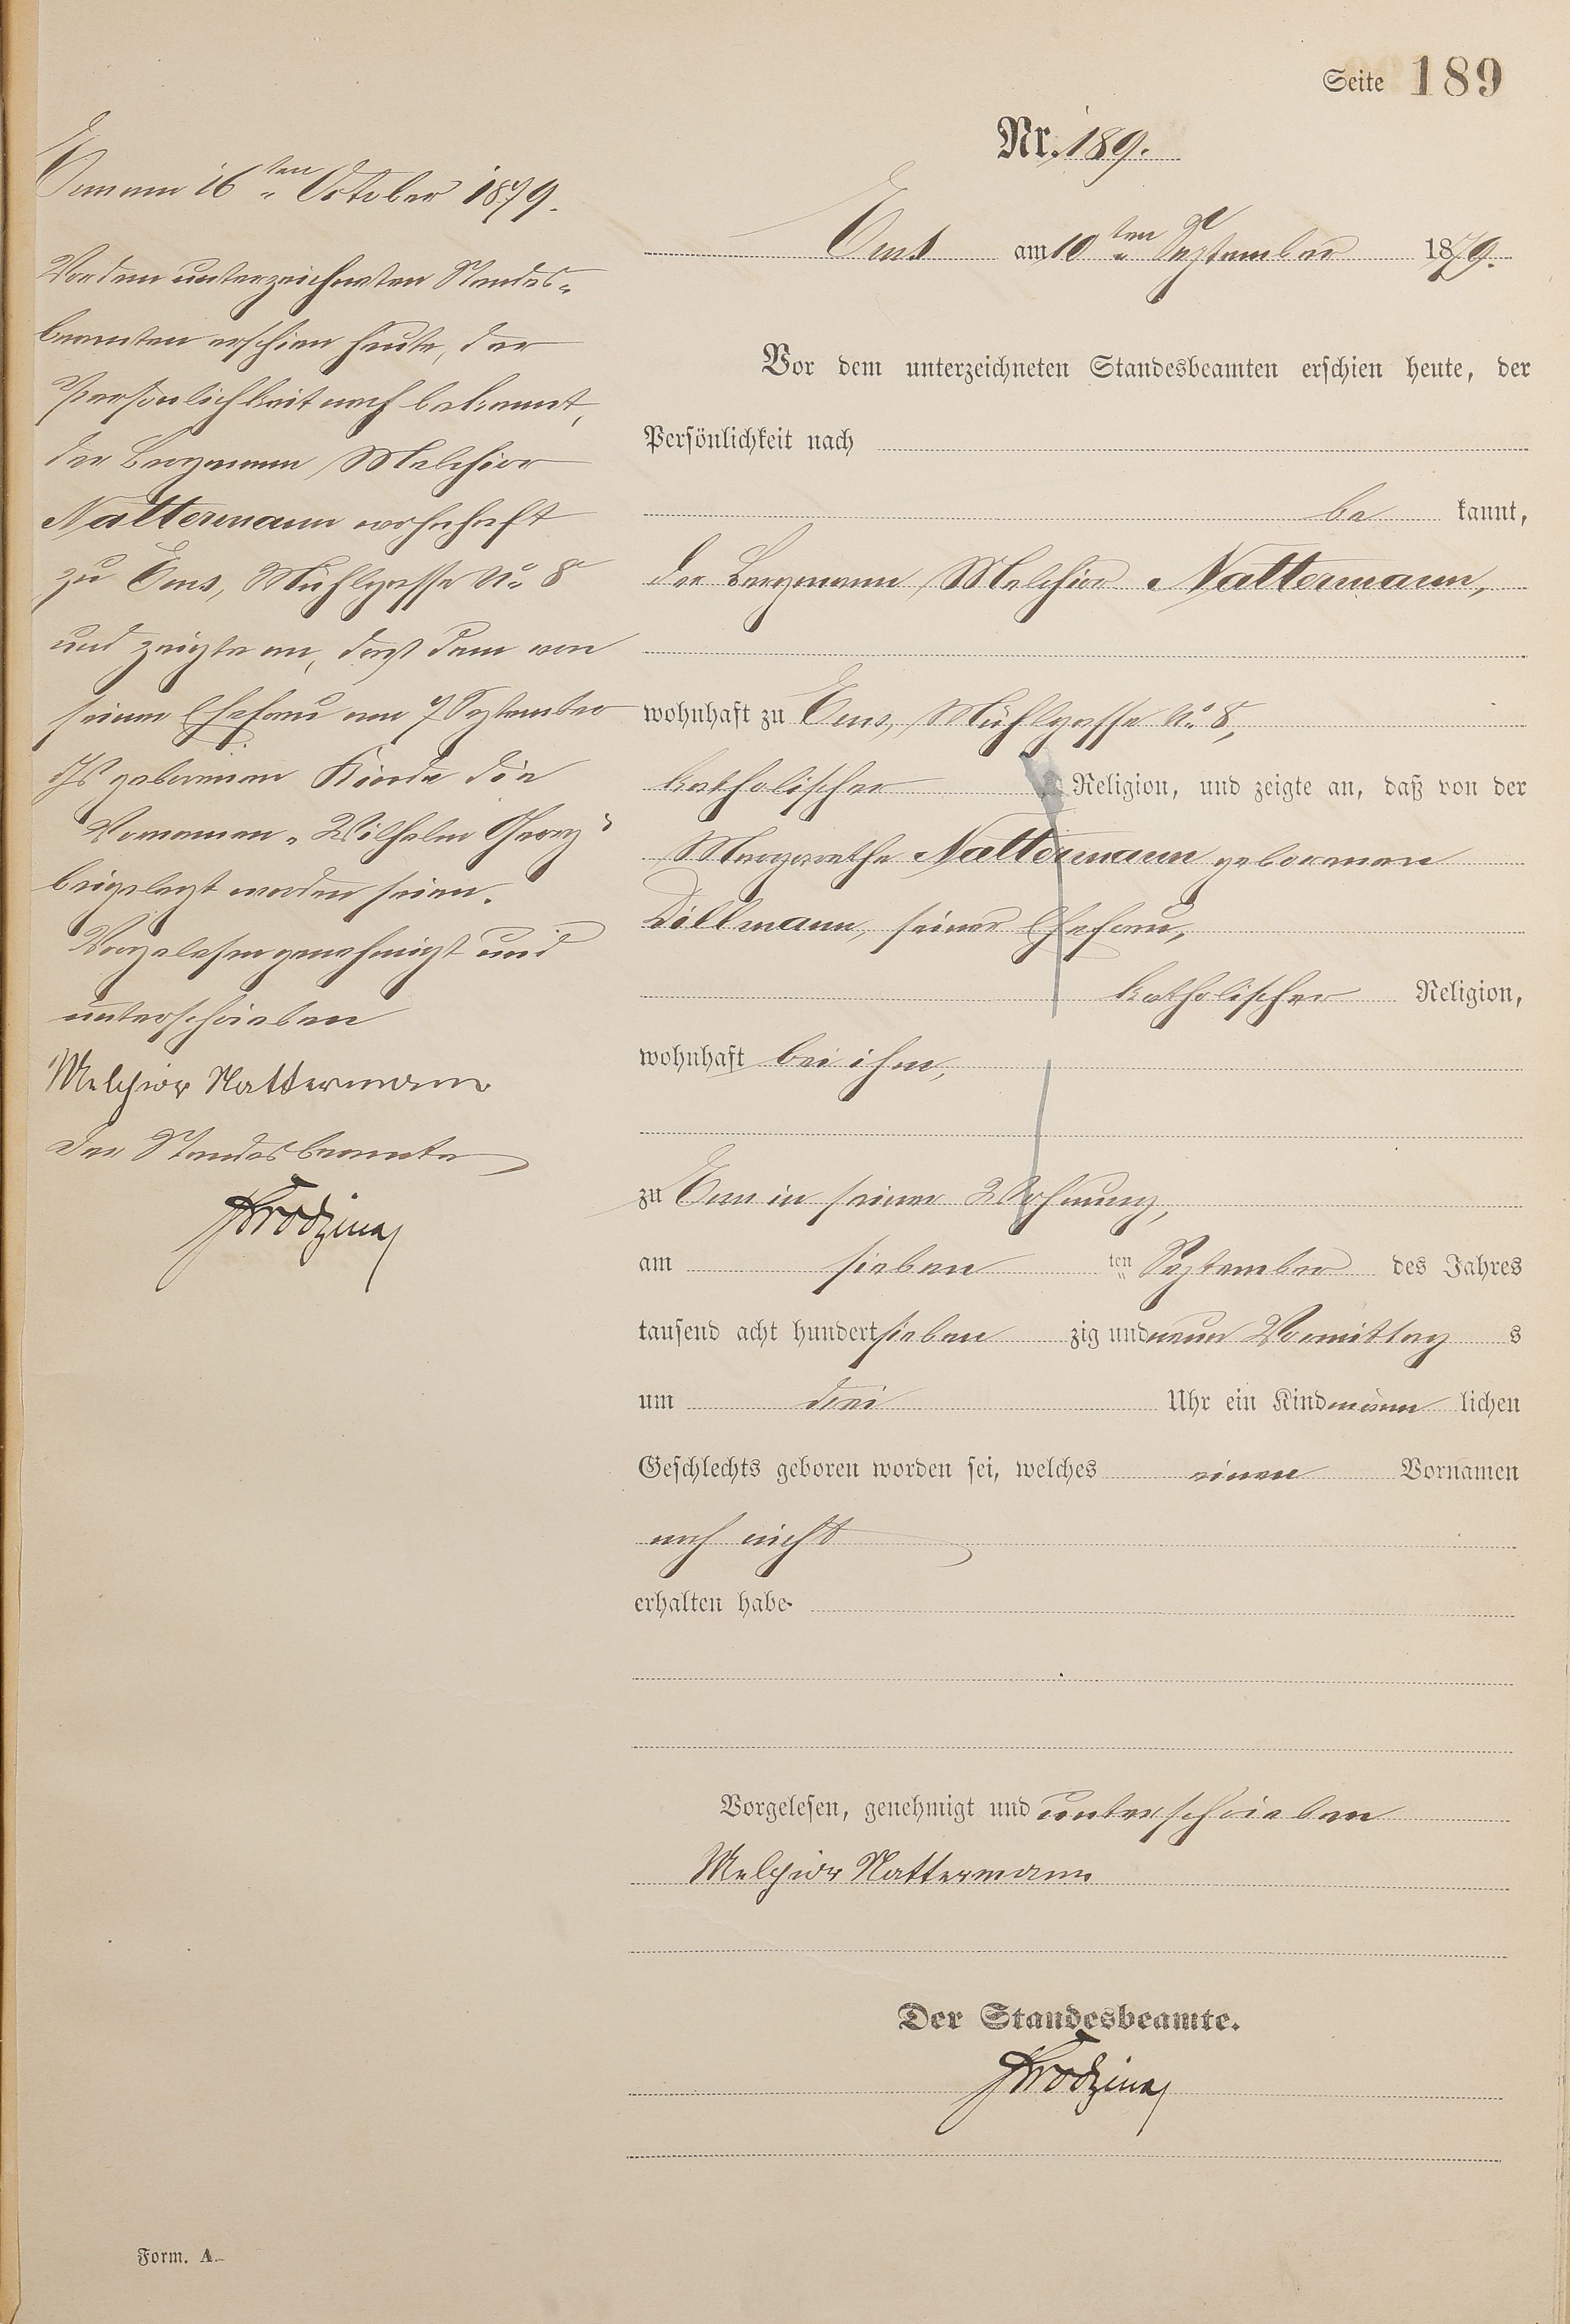 Seite 189
Nr. 189.
Ems am 10ten September 1879.
Vor dem unterzeichneten Standesbeamten erschien heute, der
Persönlichkeit nach
be kannt,
der Bergmann Melchior Nattermann,
wohnhaft zu Ems, Mühlgasse No 8,
katholischer Religion, und zeigte an, daß von der
Margarethe Nattermann geborenen
Dillmann, seiner Ehefrau,
katholischer Religion,
wohnhaft bei ihm,
zu Ems in seiner Wohnung,
am sieben ten September des Jahres
tausend acht hundert sieben zig und neun Vormittag s
um drei Uhr ein Kind männ lichen
Geschlechts geboren worden sei, welches einen Vornamen
noch nicht
erhalten habe
Vorgelesen, genehmigt und unterschrieben
Melchior Nattermann
Der Standesbeamte.
Ems am 16ten October 1879.
Vor dem unterzeichneten Standes-
beamten erschien heute, der
Persönlichkeit nach bekannt,
der Bergmann Melchior
Nattermann wohnhaft
zu Ems, Mühlgasse No 8
und zeigte an, daß dem von
seiner Ehefrau am 7 September
geborenen Kinde die
Vornamen „Wilhelm Georg“
beigelegt worden seien.
Vorgelesen genehmigt und
unterschrieben
Melchior Nattermann
Der Standesbeamte
Form. A.